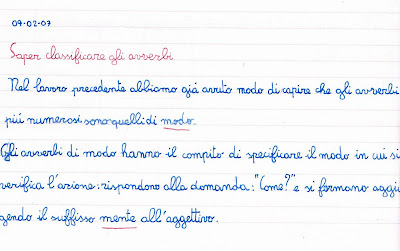 09-02-07
Saper classificare gli avverbi
Nel lavoro precedente abbiamo già avuto modo di capire che gli avverbi
più numerosi sono quelli di modo.
Gli avverbi di modo hanno il compito di specificare il modo in cui si
verifica l'azione: rispondono alla domanda: "Come?" e si formano aggiun
gendo il suffisso mente all'aggettivo.